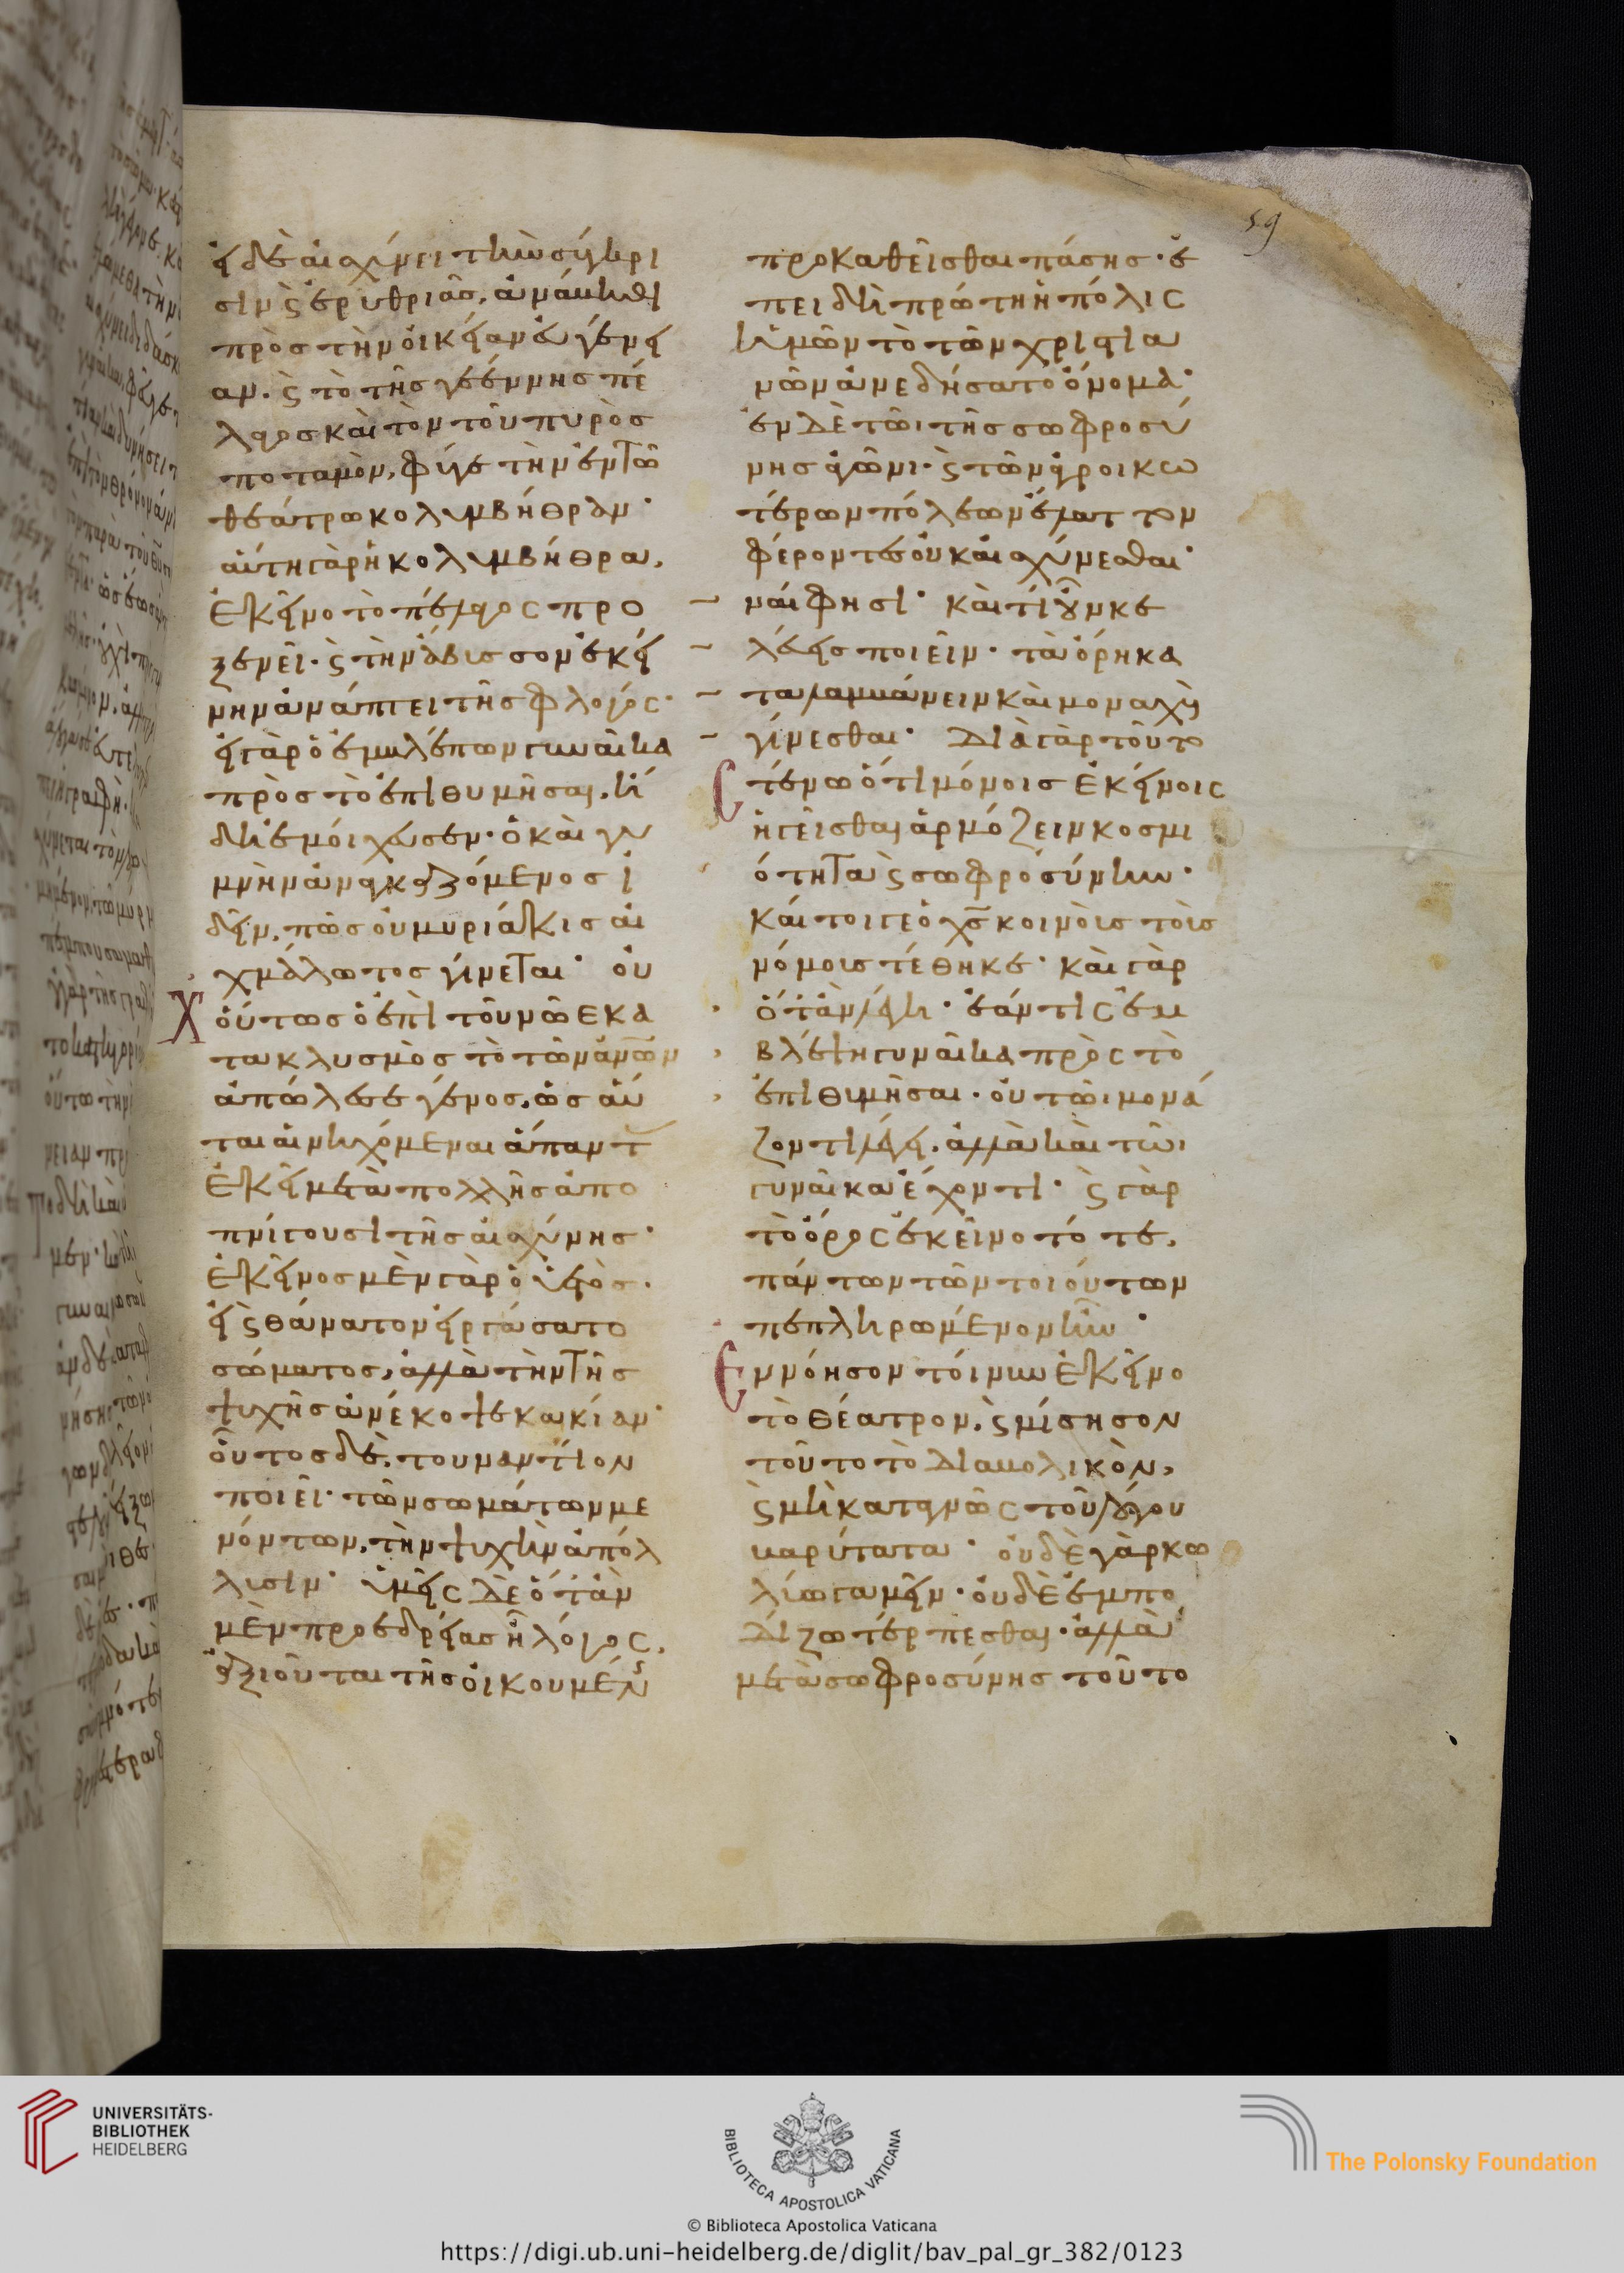 59
εἰ δὲ αἰσχύνει τὴν σύγκρι
σιν ϛ ἐρυθριᾶσ, ἀνάβηθι
πρὸσ τὴν οἰκείαν εὐγένει
αν. ϛ τὸ τῆσ γεέννησ πέ
λαγοσ καὶ τὸν τοῦ πυρὸσ
ποταμὸν, φύγε τὴν ἐν τῶ
θεάτρω κολυμβήθραν·
αὕτη γὰρ ἡ κολυμβήθρα,
ἐκεῖνο τὸ πέλαγος προ
ξενεῖ. ϛ τὴν ἄβυσσον ἐκεί
νην ἀνάπτει τῆσ φλογός·
εἰ γὰρ ὁ ἐμβλέπων γυναῖκα
πρὸσ τὸ ἐπιθυμῆσαι, ἤ
δη ἐμοίχευσεν· ὁ καὶ γυ
μνὴν ἀναγκαζόμενοσ ἰ
δεῖν, πῶσ οὐ μυριάκισ αἰ
χμάλωτοσ γίνεται· οὐ
χ οὕτωσ ὁ ἐπὶ τοῦ νῶε κα
τακλυσμὸσ τὸ τῶν ἀνων
ἀπώλεσε γένοσ, ὡσ αὗ
ται αἱ νηχόμεναι ἅπαντ
ἐκεῖ μετὰ πολλῆσ ἀπο
πνίγουσι τῆσ αἰσχύνησ·
ἐκεῖνοσ μὲν γὰρ ὁ ὑετὸσ.
εἰ ϛ θάνατον εἰργάσατο
σώματοσ, ἀλλὰ τὴν τῆσ
ψυχῆσ ἀνέκοψε κακίαν·
οὗτοσ δὲ, τουναντίον
ποιεῖ· τῶν σωμάτων με
νόντων, τὴν ψυχὴν ἀπόλ
λυσιν· ὑμεῖς δὲ ὅταν
μὲν προεδρείασ ἦ λόγος,
ἀξιοῦται τῆσ οἰκουμένησ
προκαθεῖσθαι πάσησ· ἐ
πειδὴ πρώτη ἡ πόλις
ἡμῶν τὸ τῶν χριστια
νῶν ἀνεδήσατο ὄνομα·
ἐν δὲ τῶι τῆσ σωφροσύ
νησ ἀγῶνι· ϛ τῶν ἀγροικω
τέρων πόλεων ἔλαττον
φέροντεσ οὐκ αἰσχύνεσθαι·
ναι φησί· καὶ τί οὖν κε
λεύεισ ποιεῖν· τὰ ὄρη κα
ταλαμβάνειν καὶ μοναχοὺσ
γίνεσθαι· διὰ γὰρ τοῦτο
στένω ὅτι μόνοισ ἐκείνοις
ἡγεῖσθαι ἁρμόζειν κοσμι
ότητα ϛ σωφροσύνην·
καίτοιγε ὁ χσ κοινοῖσ τοῖσ
νόμοισ τέθηκε· καὶ γὰρ
ὅταν λέγη· ἐάν τις ἐμ
βλέψη γυναῖκα πρὸς τὸ
ἐπιθυμῆσαι· οὐ τῶι μονά
ζοντι λέγει. ἀλλὰ καὶ τῶι
γυναῖκα ἔχοντι· ϛ γὰρ
τὸ ὄρος ἐκεῖνο τότε,
πάντων τῶν τοιούτων
πεπληρωμένον ἦν·
Ἐννόησον τοίνυν ἐκεῖνο
τὸ θέατρον, ϛ μίσησον
τοῦτο τὸ διαβολικὸν,
ϛ μὴ καταγνῶς τοῦ λόγου
βαρύτατα· οὐδὲ γὰρ κω
λύω γαμεῖν· οὐδὲ ἐμπο
δίζω τέρπεσθαι· ἀλλὰ
μετὰ σωφροσύνησ τοῦτο
UNIVERSITÄTS-
BIBLIOTHEK
HEIDELBERG
BIBLIOTECA APOSTOLICA VATICANA
The Polonsky Foundation
© Biblioteca Apostolica Vaticana
https://digi.ub.uni-heidelberg.de/diglit/bav_pal_gr_382/0123